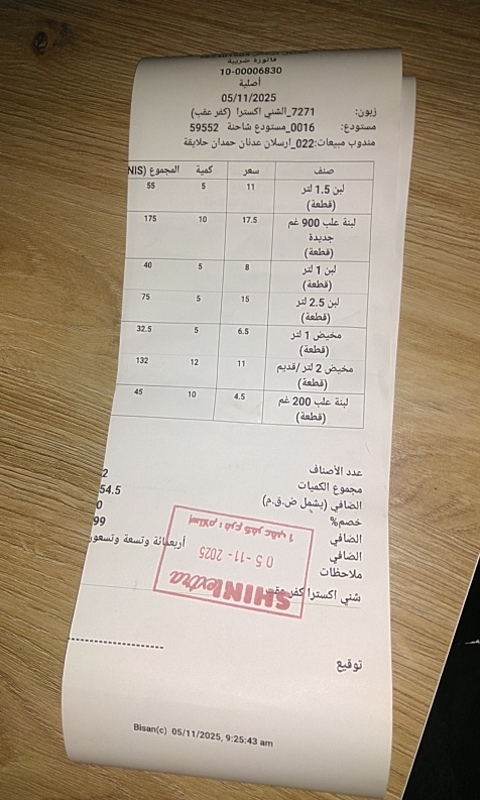 فاتورة ضريبية
10-00006830
أصلية
05/11/2025
زبون: 7271_الشني اكسترا (كفر عقب)
مستودع: 0016_مستودع شاحنة 59552
مندوب مبيعات:022_ارسلان عدنان حمدان حلايقة
صنف سعر كمية المجموع (NIS
لبن 1.5 لتر (قطعة) 11 5 55
لبنة علب 900 غم جديدة (قطعة) 17.5 10 175
لبن 1 لتر (قطعة) 8 5 40
لبن 2.5 لتر (قطعة) 15 5 75
مخيض 1 لتر (قطعة) 6.5 5 32.5
مخيض 2 لتر /قديم (قطعة) 11 12 132
لبنة علب 200 غم (قطعة) 4.5 10 45
عدد الأصناف
مجموع الكميات 2
الصافي (يشمل ض.ق.م) 54.5
خصم% 0
الصافي 99
الصافي أربعمائة وتسعة وتسعو
ملاحظات
شني اكسترا كفر عقب
إستلام : فرع كفر عقب 1
05-11-2025
SHINI extra
توقيع
Bisan(c) 05/11/2025, 9:25:43 am